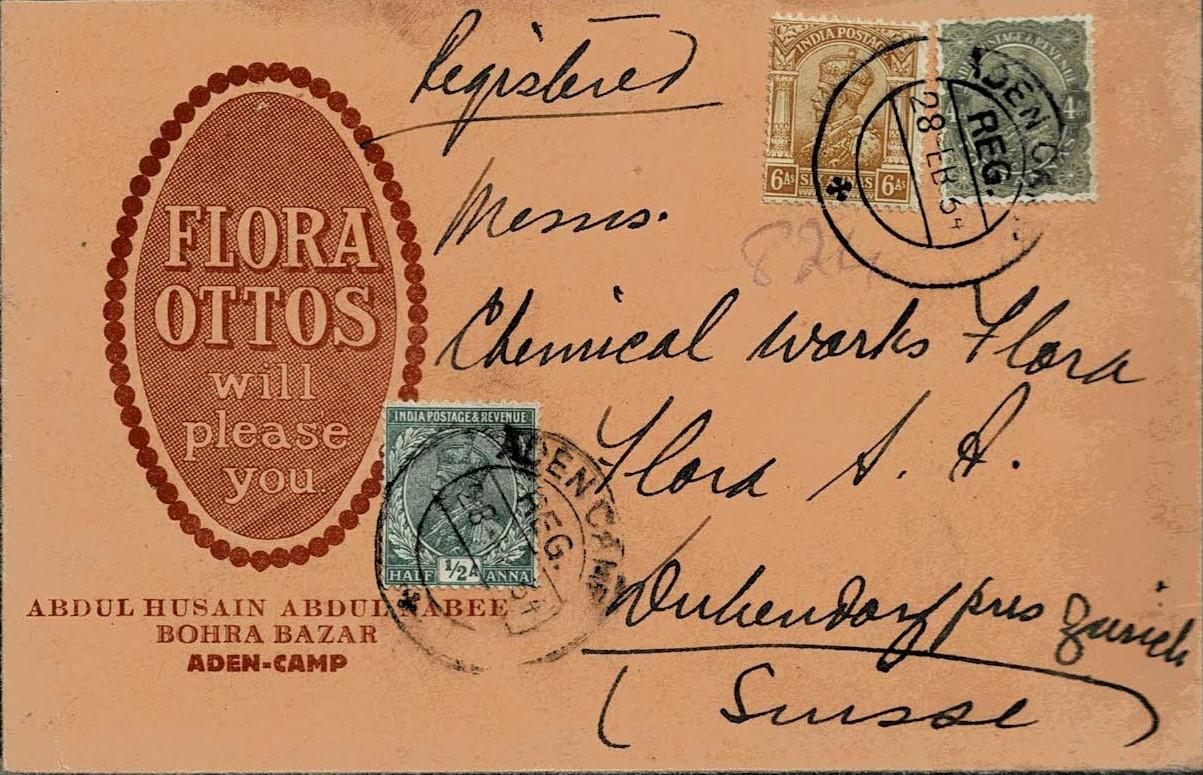 Registered
INDIA POSTAGE
6As SIX ANNAS 6As
POSTAGE & REVENUE
4
ADEN CAMP
REG.
28 FEB 34
824
FLORA
OTTOS
will
please
you.
Messrs.
Chemical works Flora
Flora S. A.
Dubendorf près Zurich
(Suisse)
INDIA POSTAGE & REVENUE
HALF 1/2A ANNA
ADEN CAMP
REG.
28
34
ABDUL HUSAIN ABDUL NABEE
BOHRA BAZAR
ADEN-CAMP